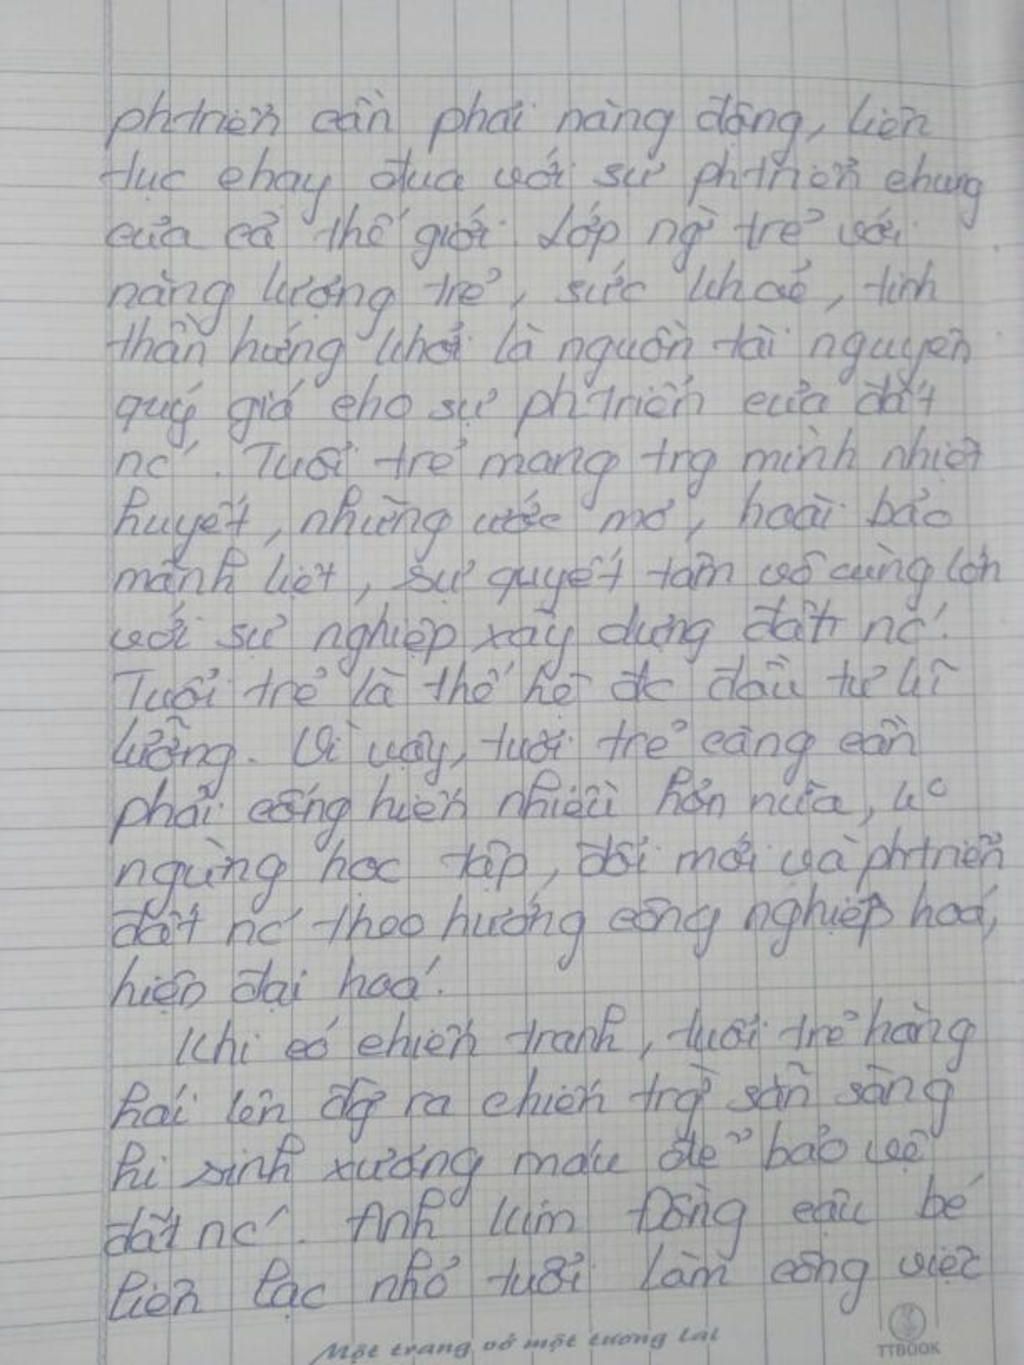 phtriển cần phải năng động, liên
tục chạy đua với sự phtriển chung
của cả thế giới. Lớp ng` trẻ với
năng lượng trẻ, sức khoẻ, tinh
thần hứng khởi là nguồn tài nguyên
quý giá cho sự phtriển của đất
nc'. Tuổi trẻ mang trg mình nhiệt
huyết, những ước mơ, hoài bão
mãnh liệt, sự quyết tâm vô cùng lớn
với sự nghiệp xây dựng đất nc'.
Tuổi trẻ là thế hệ đc đầu tư kĩ
lưỡng. Vì vậy, tuổi trẻ càng cần
phải cống hiến nhiều hơn nữa, ko
ngừng học tập, đổi mới và phtriển
đất nc' theo hướng công nghiệp hoá,
hiện đại hoá.
Khi có chiến tranh, tuổi trẻ hăng
hái lên đg ra chiến trg` sẵn sàng
hi sinh xương máu để bảo vệ
đất nc'. Anh Kim Đồng cậu bé
liên lạc nhỏ tuổi làm công việc
Một trang vở một tương lai
TTBOOK